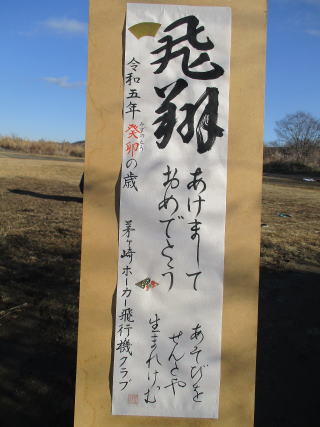 飛翔
あけまして
おめでとう
あそびを
せんとや
生まれけむ
令和五年癸卯の歳
みずのとう
茅ヶ崎ホーカー飛行機クラブ